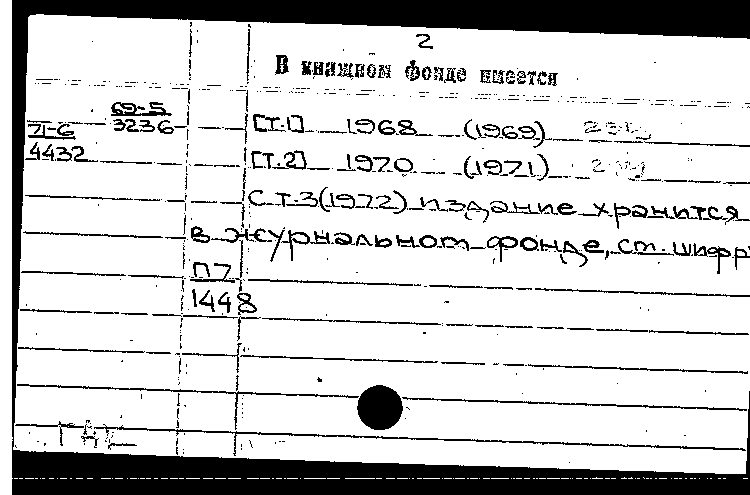 2
В книжном фонде имеется
69-5
71-6 3236
4432
[Т.1] 1968 (1969)
[Т.2] 1970 (1971)
С Т.3(1972) издание хранится
в журнальном фонде, см. шифр
П7
1448